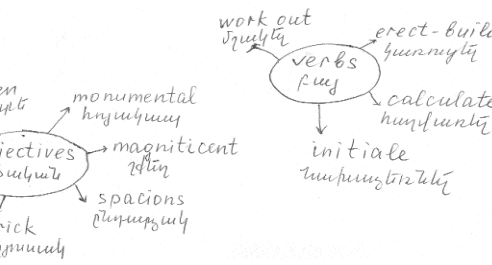 work out
մշակել
erect-build
կառուցել
verbs
բայ
calculate
հաշվարկել
initiale
նախաձեռնել
monumental
հոյակապ
magniticent
շքեղ
spacions
ընդարձակ